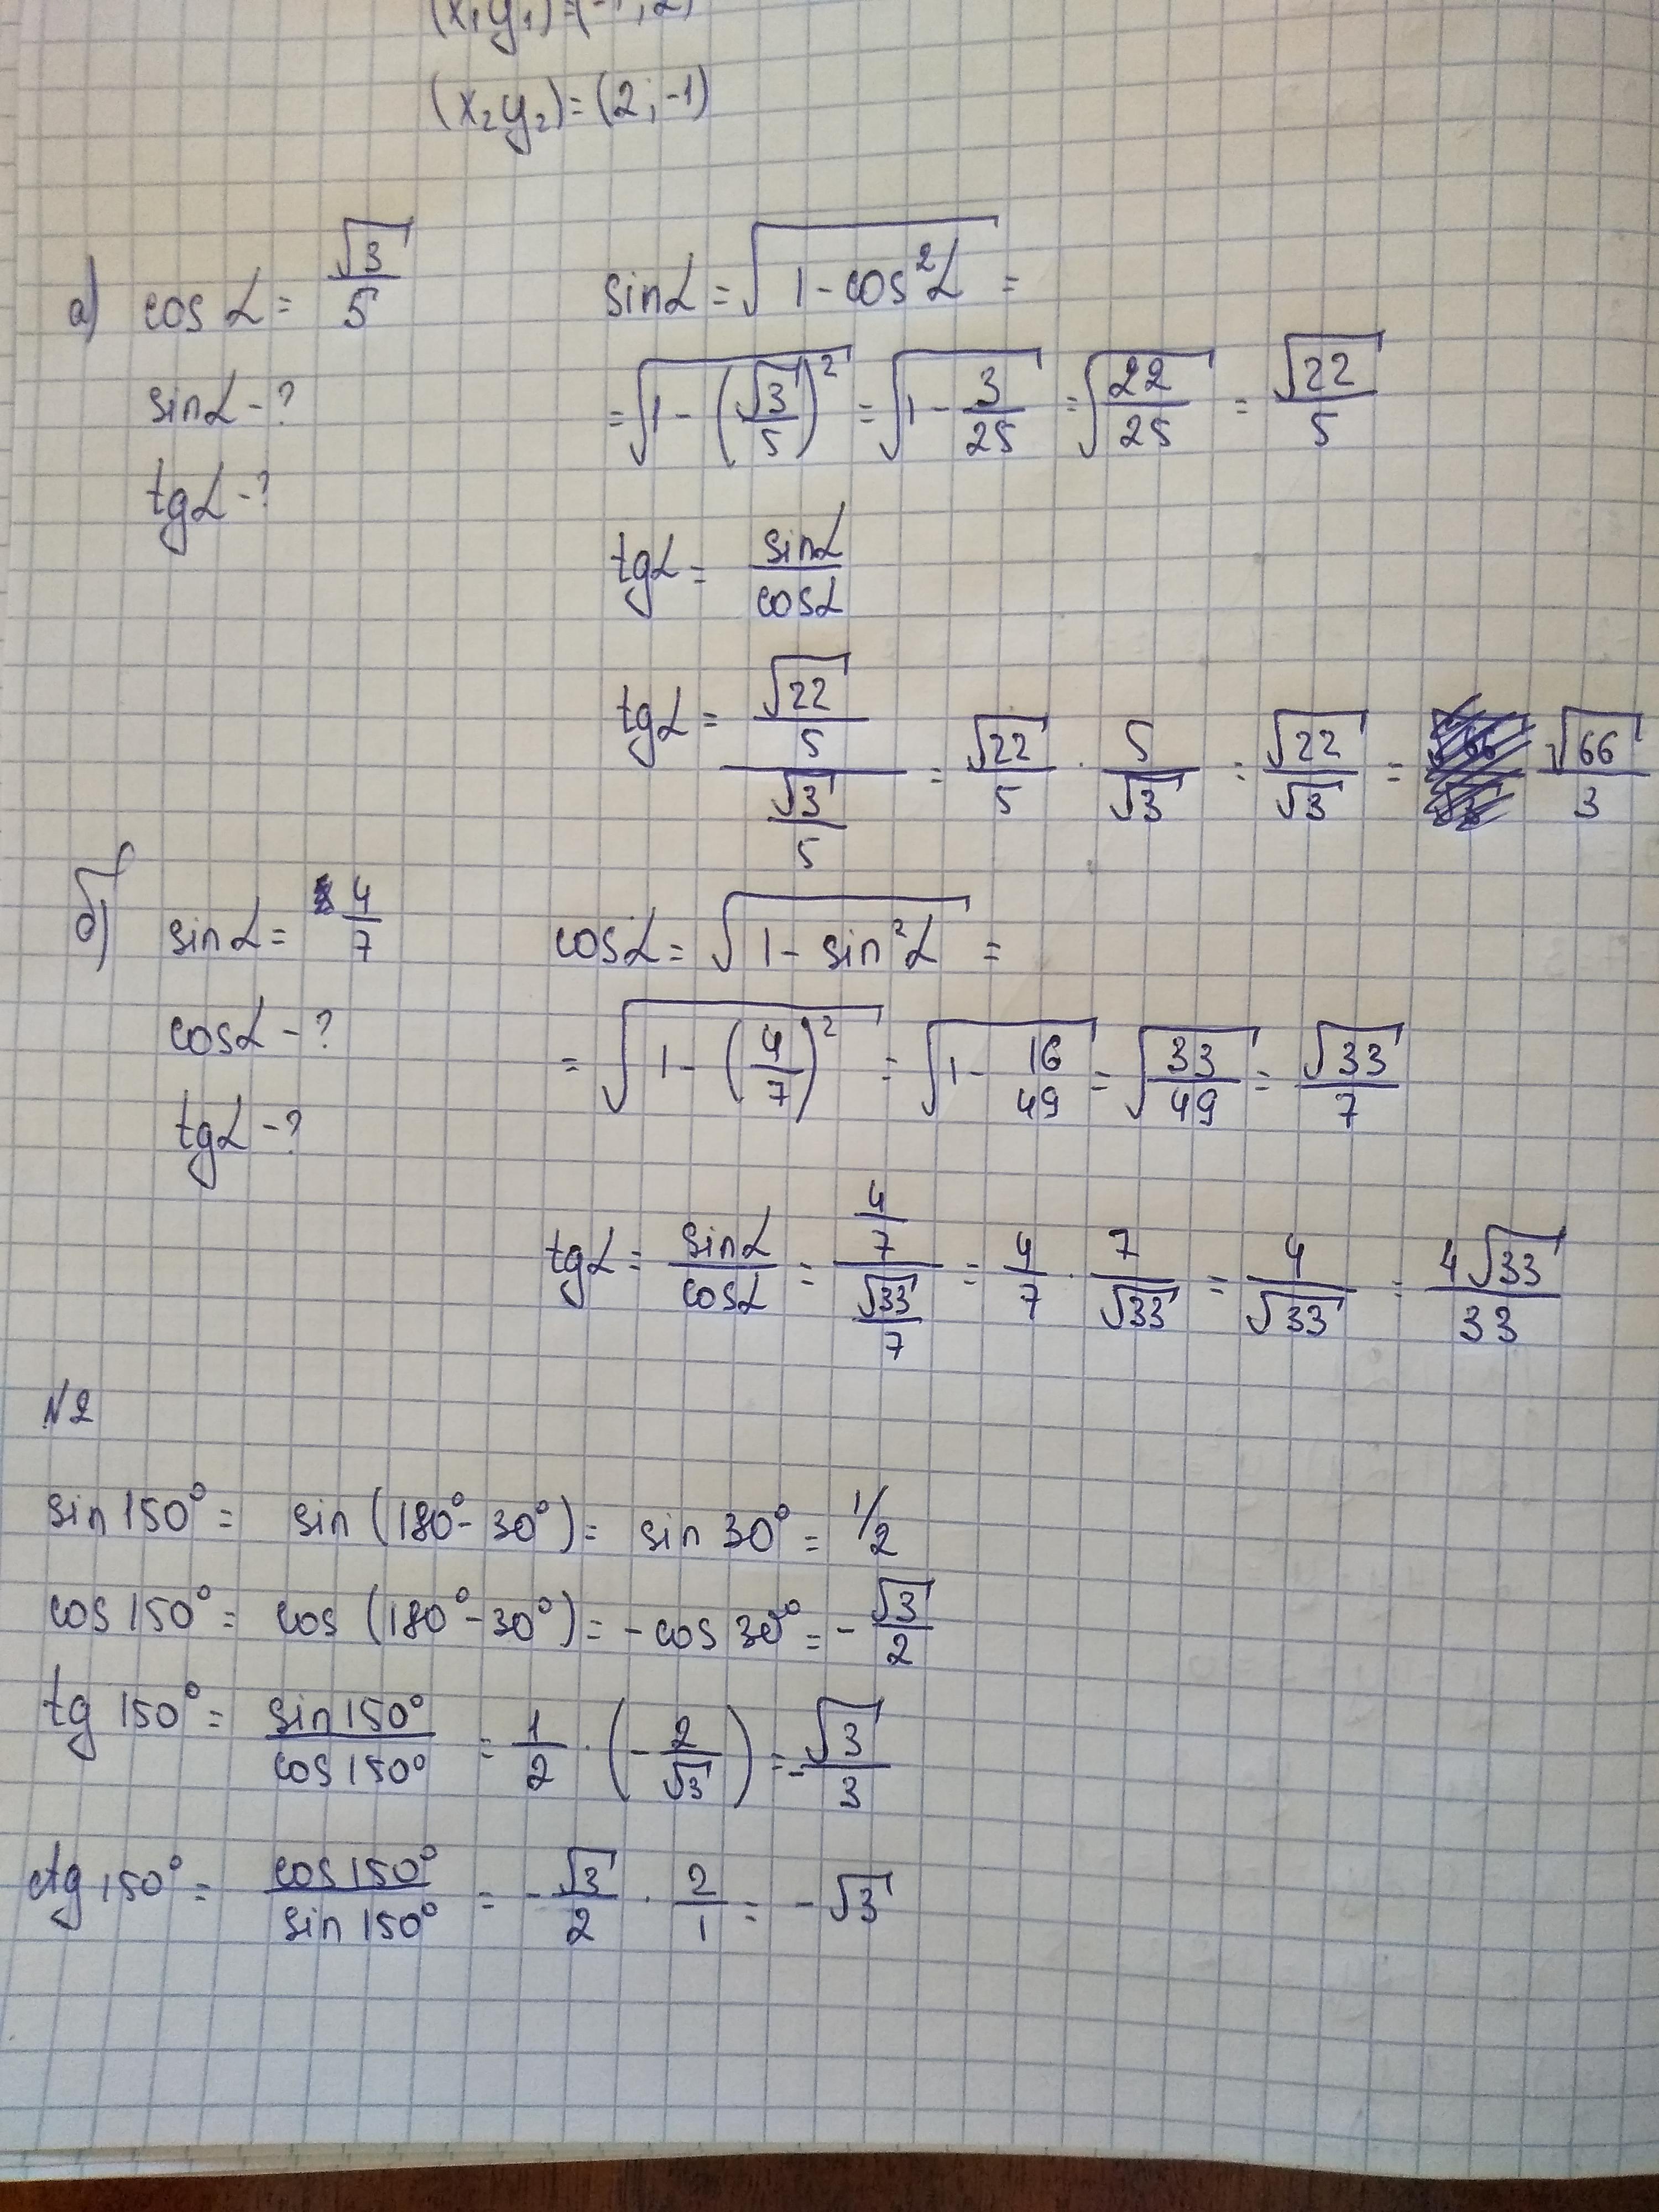 (x₁y₁)=(-1;2)
(x₂y₂)=(2;-1)
а) cos α = √3/5
sin α = √(1-cos²α) =
sin α - ?
= √(1-(√3/5)²) = √(1-3/25) = √(22/25) = √22/5
tg α - ?
tg α = sin α/cos α
tg α = (√22/5)/(√3/5) = √22/5 · 5/√3 = √22/√3 = √66/3
б) sin α = 4/7
cos α = √(1-sin²α) =
cos α - ?
= √(1-(4/7)²) = √(1-16/49) = √(33/49) = √33/7
tg α - ?
tg α = sin α/cos α = (4/7)/(√33/7) = 4/7 · 7/√33 = 4/√33 = 4√33/33
N2
sin 150° = sin (180°-30°) = sin 30° = 1/2
cos 150° = cos (180°-30°) = -cos 30° = -√3/2
tg 150° = sin 150°/cos 150° = 1/2 · (-2/√3) = -√3/3
ctg 150° = cos 150°/sin 150° = -√3/2 · 2/1 = -√3